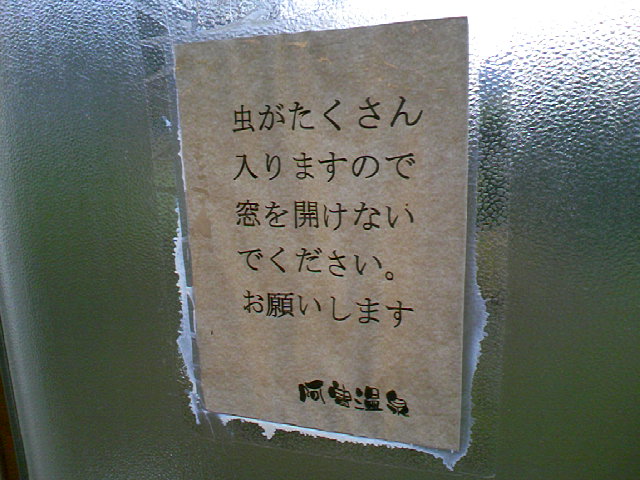 虫がたくさん
入りますので
窓を開けない
でください。
お願いします
阿曽温泉